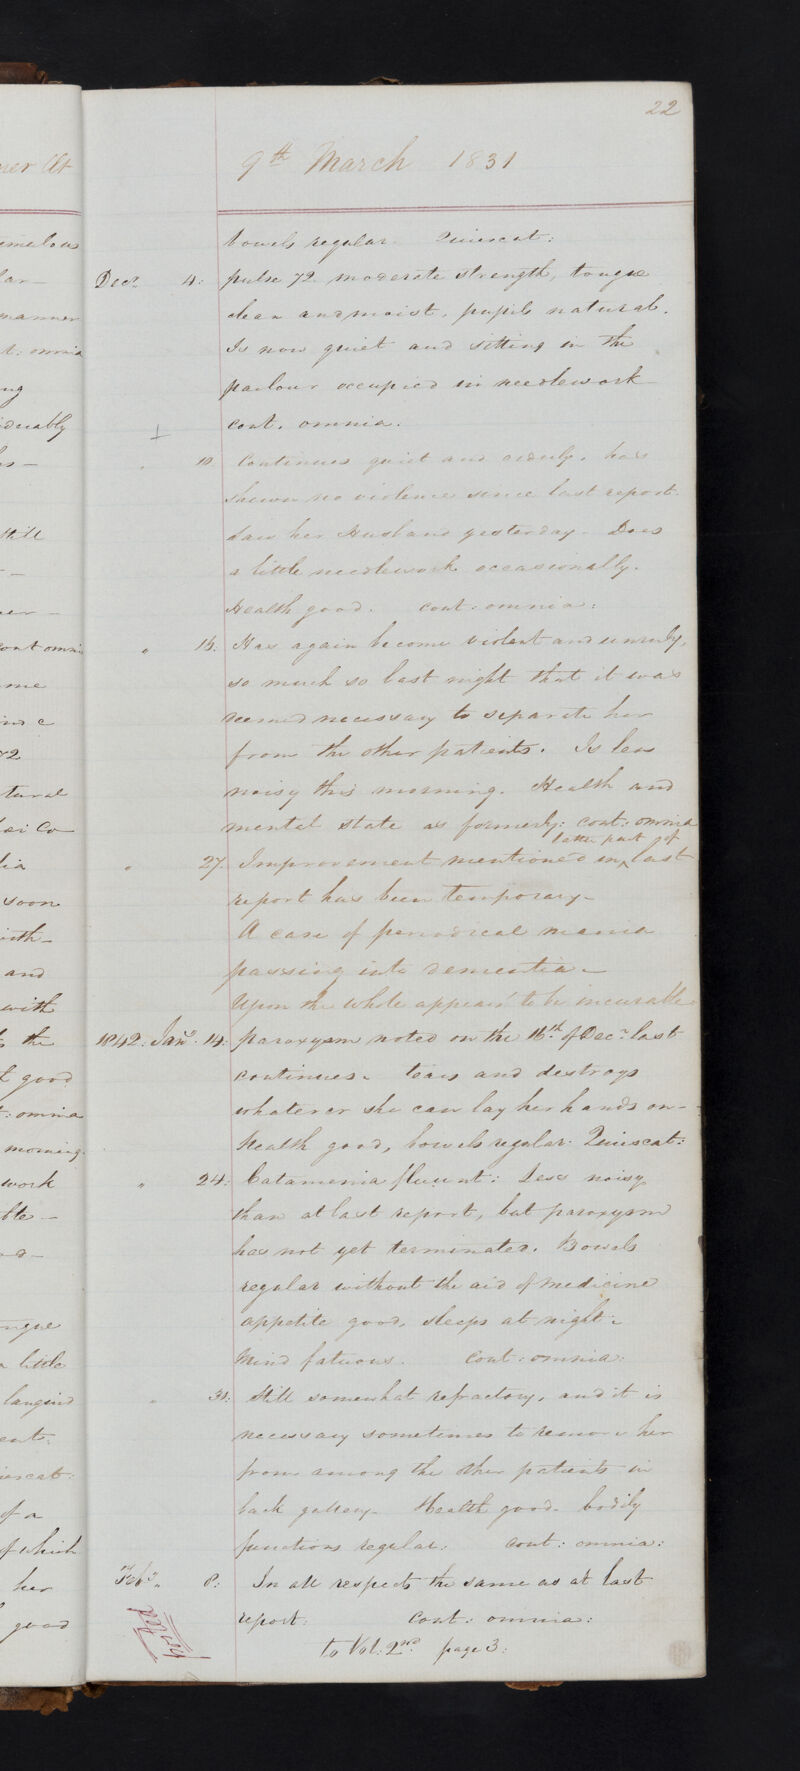 22
9th March 1831
bowels regular. Quiescat:
Decr 4: pulse 72. moderate strength, tongue
clean and moist, pupils natural.
Is now quiet and sitting in the
parlour occupied in needlework
cont. omnia.
+
" 10 Continues quiet and orderly, has
shewn no violence since last report.
Saw her Husband yesterday. Does
a little needlework occasionally.
Health good. cont: omnia:
" 16: Has again become violent and unruly,
so much so last night that it was
deemed necessary to separate her
from the other patients. Is less
noisy this morning. Health and
mental state as formerly: cont: omnia
latter part of
" 27. Improvement mentioned in last
report has been temporary.
A case of periodical mania
passing into dementia.
Upon the whole appears to be incurable
1842: Jany. 14: paroxysm noted on the 16th of Decr last
continues. tears and destroys
whatever she can lay her hands on.
Health good, bowels regular. Quiescat:
" 24: Catamenia fluunt: Less noisy
than at last report, but paroxysm
has not yet terminated. Bowels
regular without the aid of medicine
appetite good, sleeps at night.
Mind fatuous. Cont: omnia:
" 31: Still somewhat refractory, and it is
necessary sometimes to remove her
from among the other patients in
back gallery. Health good. bodily
functions regular. Cont: omnia:
Feby " 8: In all respects the same as at last
report: Cont: omnia:
to Vol: 2nd page 3:
ner At
omnia
manner
still
tural
soon
and
with
the
good
omnia
morning.
work
little
languid
of a
of which
her
good